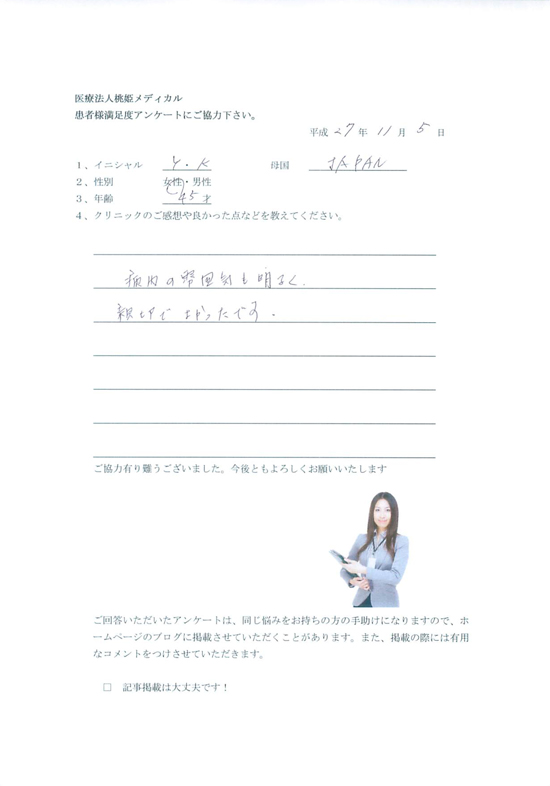 医療法人桃姫メディカル
患者様満足度アンケートにご協力下さい。
平成 27 年 11 月 5 日
1、イニシャル Y.K 母国 JAPAN
2、性別 女性・男性
3、年齢 45 才
4、クリニックのご感想や良かった点などを教えてください。
病内の雰囲気も明るく、
親切でよかったです。
ご協力有り難うございました。今後ともよろしくお願いいたします
ご回答いただいたアンケートは、同じ悩みをお持ちの方の手助けになりますので、ホ
ームページのブログに掲載させていただくことがあります。また、掲載の際には有用
なコメントをつけさせていただきます。
□ 記事掲載は大丈夫です！